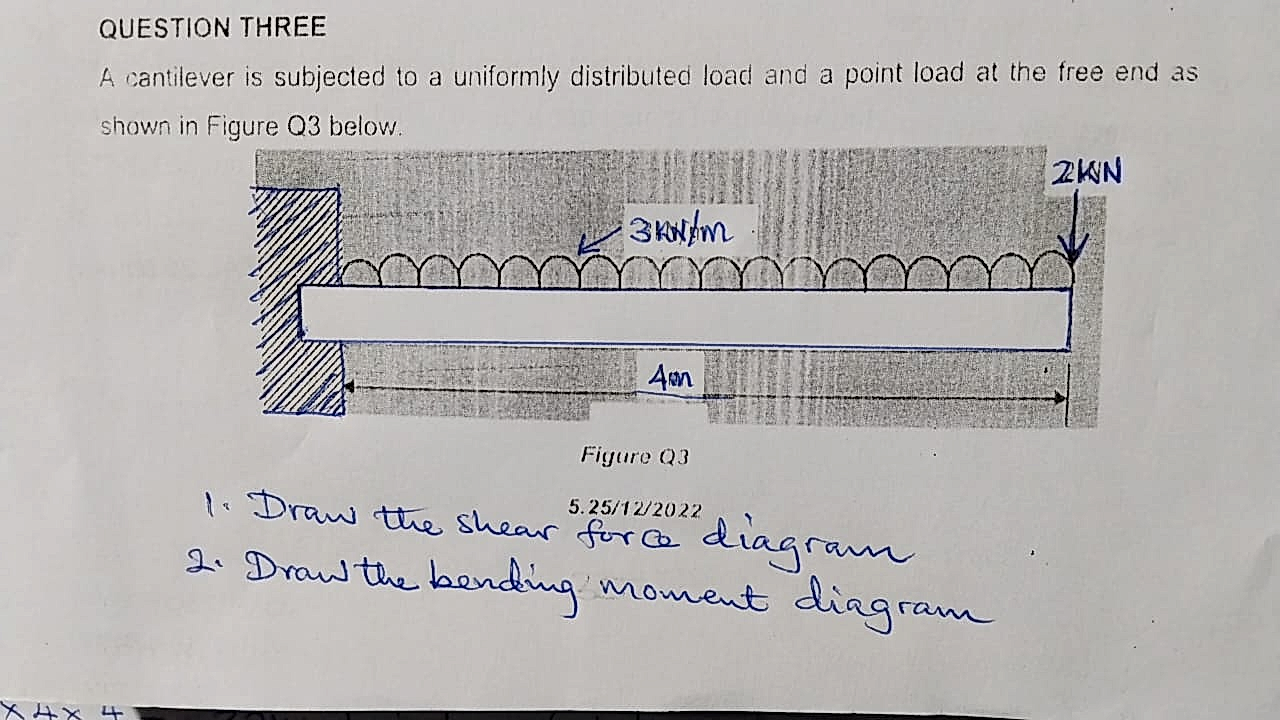 QUESTION THREE
A cantilever is subjected to a uniformly distributed load and a point load at the free end as
shown in Figure Q3 below.
2KN
3KN/m
4m
Figure Q3
5.25/12/2022
1. Draw the shear force diagram
2. Draw the bending moment diagram
x 4 x 4